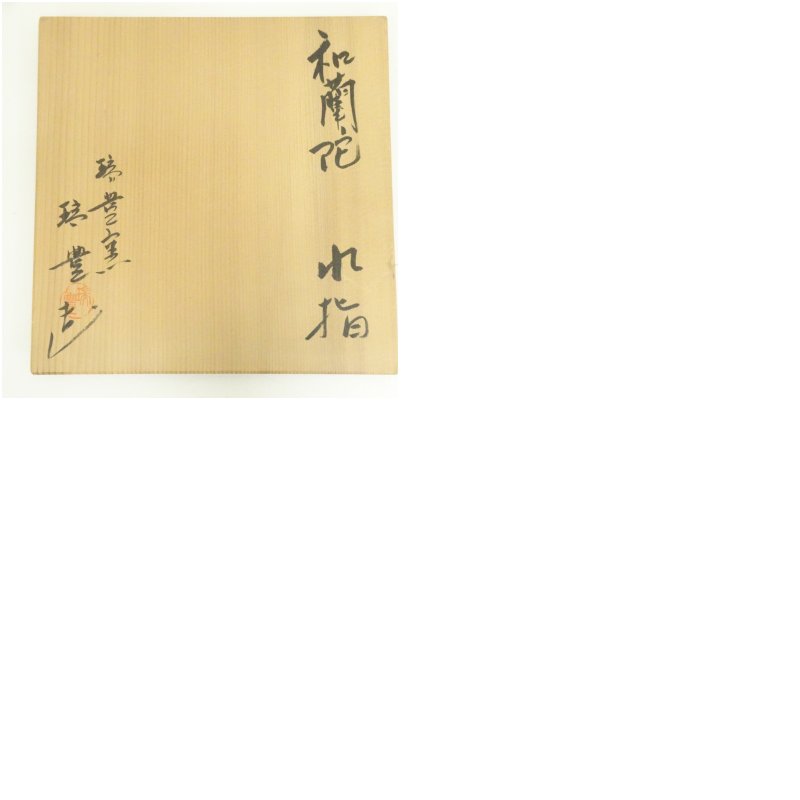 和蘭陀 水指
瑞豊窯
瑞豊造